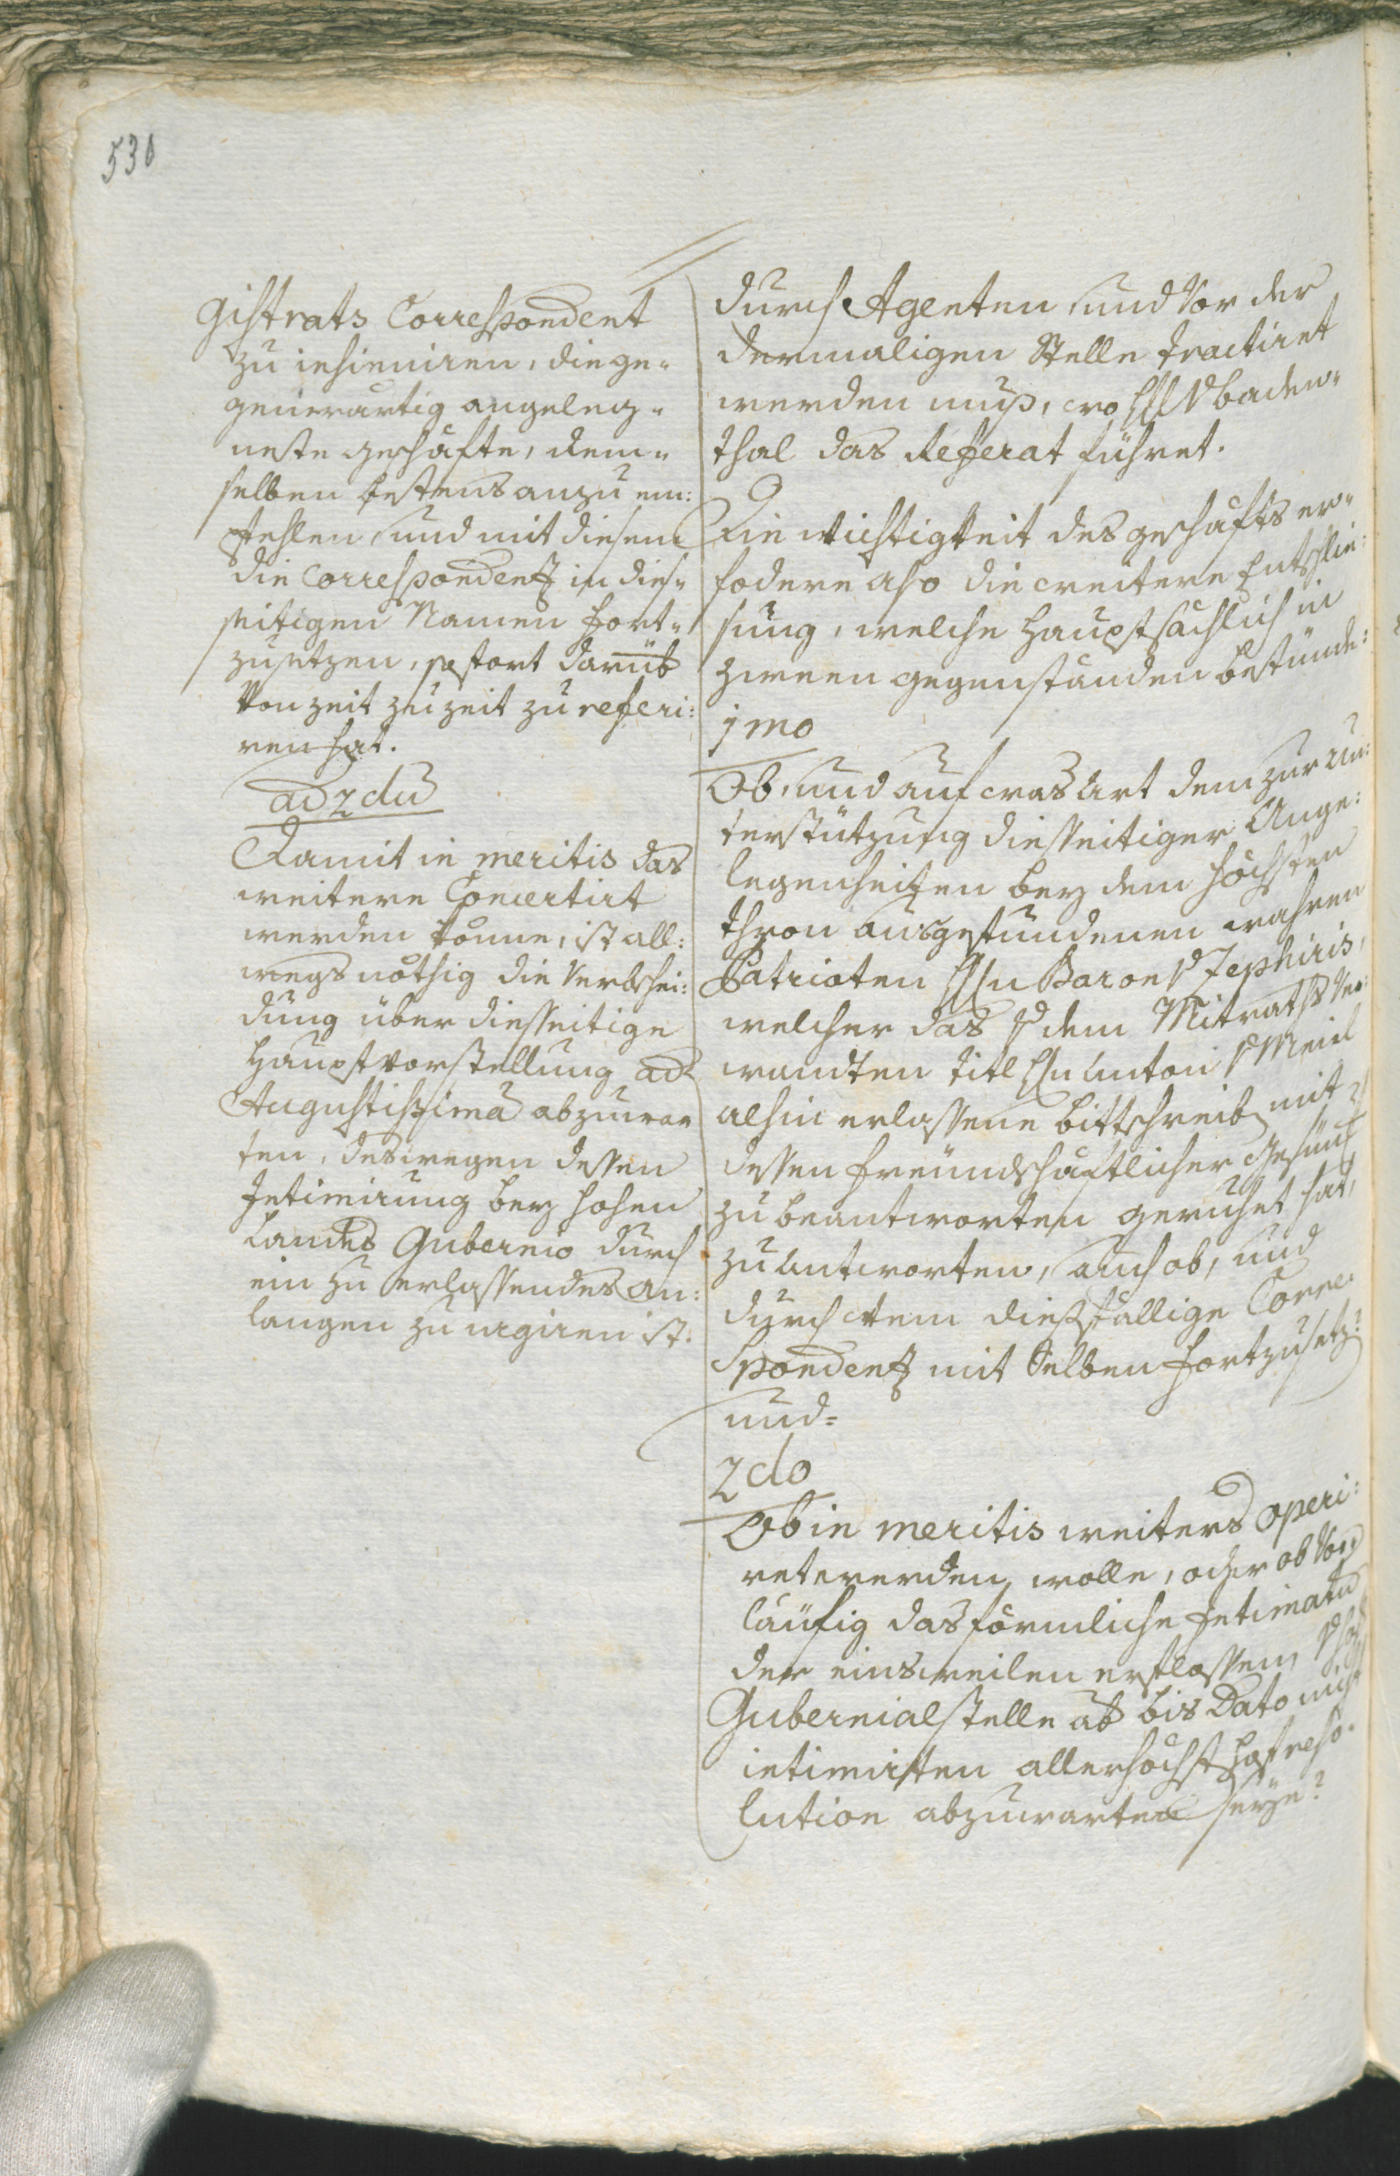 530
gistrats Correspondent
zu insinuiren, die ge-
genwärtig angelegn-
neste geschäfte, dem-
selben bestens anzu em:
pfehlen, und mit diesem
die Correspondenz in dies-
seitigen Namen fort-
zusetzen, sofort darüb
Von zeit zu zeit zu referi:
ren hat.
ad 2dum
Damit in meritis das
weitere Concertirt
werden könne, ist all:
wegs nöthig die Verbschei:
dung über diesseitige
Hauptvorstellung ad
Augustissimam abzuwar
ten, deswegen dessen
Intimirung bey hohen
Landes Gubernio durch
ein zu erlassendes an:
langen zu urgiren ist.
durch Agenten, und vor der
dermaligen Stelle tractiret
werden muß, wo H v baden-
thal das Referat führet.
Die Wichtigkeit des geschäfts er-
fodere also die weitere Entschlie:
sung, welche Hauptsächlich in
zween gegenständen bestünde:
1mo
Ob, und auf was Art dem zur un:
terstützung diesseitiger Ange:
legenheiten bey dem höchsten
thron ausgestandenen wahren
Patrioten Hn Baron v Zephiris,
welcher das v dem Mitraths Ver
wandten titl Hn Anton v Meirl
alhin erlassene bittschreib mit
dessen freundschaftlicher
zu beantworten geruhet hat,
zu antworten, auch ob, und
durch wem dießfällige Corre
spondenz mit Selben fortzusetz?
und=
2do
Ob in meritis weiters operi:
ret werden wolle, oder ob Vor
läufig das förmliche Intimatum
der einsweilen erflossen,
Gubernialstelle ab bis Dato nicht
intimirten allerhöchst Hofreso-
lution abzuwarten seye?